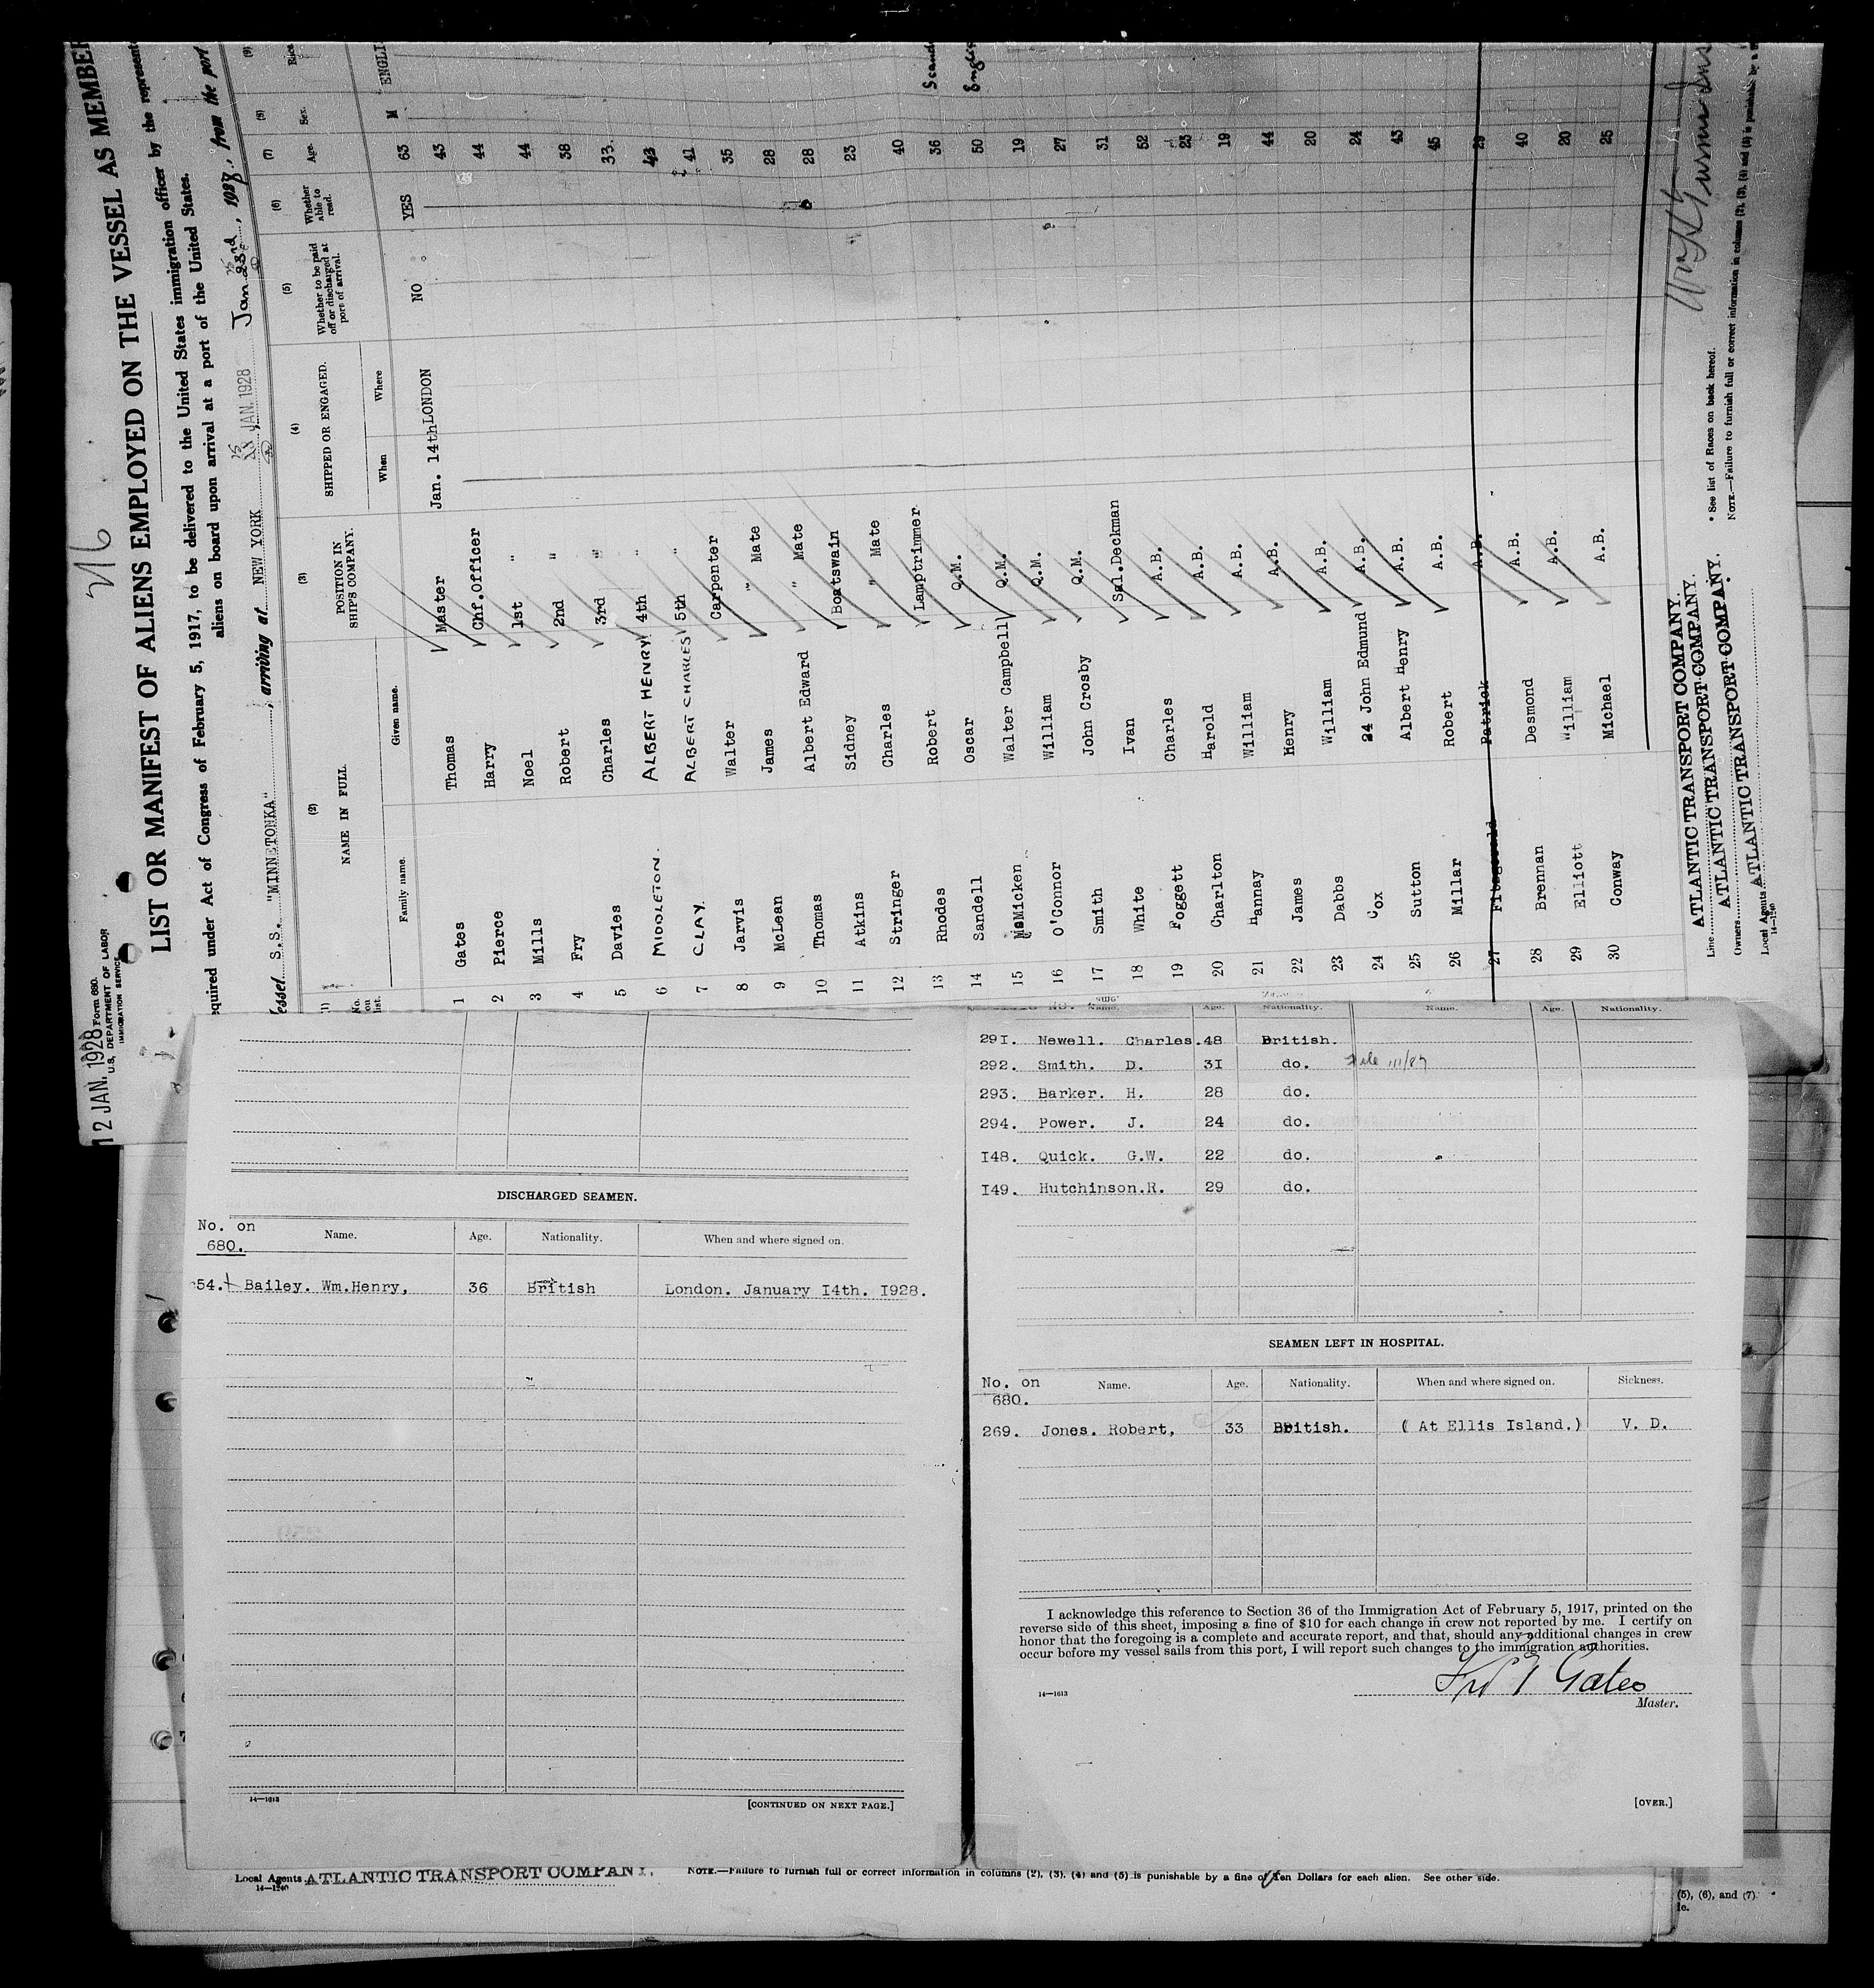 12 JAN. 1928
Form 680.
U.S. DEPARTMENT OF LABOR
IMMIGRATION SERVICE
216
LIST OR MANIFEST OF ALIENS EMPLOYED ON THE VESSEL AS MEMBER
equired under Act of Congress of February 5, 1917, to be delivered to the United States immigration officer by the represent
aliens on board upon arrival at a port of the United States.
essel S.S. "MINNETONKA", arriving at NEW YORK JAN. 1928 Jan 23rd, 1928, from the port
(1) (2) (3) (4) (5) (6) (7) (8) (9)
No. on list. NAME IN FULL. POSITION IN SHIP'S COMPANY. SHIPPED OR ENGAGED. Whether to be paid off or discharged at port of arrival. Whether able to read. Age. Sex. Race
Family name. Given name. When Where
1 Gates Thomas Master Jan. 14th LONDON NO YES 63 M ENGLI
2 Pierce Harry Chf.Officer 43
3 Mills Noel 1st " 44
4 Fry Robert 2nd " 44
5 Davies Charles 3rd " 38
6 MIDDLETON. ALBERT HENRY 4th " 33
7 CLAY. ALBERT CHARLES 5th " 43
8 Jarvis Walter Carpenter 41
9 McLean James " Mate 35
10 Thomas Albert Edward " Mate 28
11 Atkins Sidney Boatswain 28
12 Stringer Charles " Mate 23
13 Rhodes Robert Lamptrimmer 40
14 Sandell Oscar Q.M. 36 Scand
15 McMicken Walter Campbell Q.M. 50 Englis
16 O'Connor William Q.M. 19
17 Smith John Crosby Q.M. 27
18 White Ivan Sal.Deckman 31
19 Foggett Charles A.B. 52
20 Charlton Harold A.B. 23
21 Hannay William A.B. 19
22 James Henry A.B. 44
23 Dabbs William A.B. 20
24 Cox 24 John Edmund A.B. 24
25 Sutton Albert Henry A.B. 43
26 Millar Robert A.B. 45
27 Fitzgerald Patrick A.B. 29
28 Brennan Desmond A.B. 40
29 Elliott William A.B. 20
30 Conway Michael A.B. 25
Line ATLANTIC TRANSPORT COMPANY.
ATLANTIC TRANSPORT COMPANY.
Owners ATLANTIC TRANSPORT COMPANY.
Local Agents ATLANTIC TRANSPORT COMPANY.
14—1240
* See list of Races on back hereof.
NOTE.—Failure to furnish full or correct information in columns (2), (3), (4) and (5) is punishable by a
DISCHARGED SEAMEN.
No. on 680. Name. Age. Nationality. When and where signed on.
54. Bailey. Wm.Henry, 36 British London. January I4th. I928.
14—1613 [CONTINUED ON NEXT PAGE.]
Name. Age. Nationality. Name. Age. Nationality.
29I. Newell. Charles. 48 British.
292. Smith. D. 3I do.
293. Barker. H. 28 do.
294. Power. J. 24 do.
I48. Quick. G.W. 22 do.
I49. Hutchinson.R. 29 do.
SEAMEN LEFT IN HOSPITAL.
No. on 680. Name. Age. Nationality. When and where signed on. Sickness.
269. Jones. Robert, 33 British. ( At Ellis Island.) V. D.
I acknowledge this reference to Section 36 of the Immigration Act of February 5, 1917, printed on the
reverse side of this sheet, imposing a fine of $10 for each change in crew not reported by me. I certify on
honor that the foregoing is a complete and accurate report, and that, should any additional changes in crew
occur before my vessel sails from this port, I will report such changes to the immigration authorities.
Gates
14—1613
Master.
[OVER.]
Local Agents ATLANTIC TRANSPORT COMPANY. NOTE.—Failure to furnish full or correct information in columns (2), (3), (4) and (5) is punishable by a fine of Ten Dollars for each alien. See other side.
14—1240
(5), (6), and (7)
le.